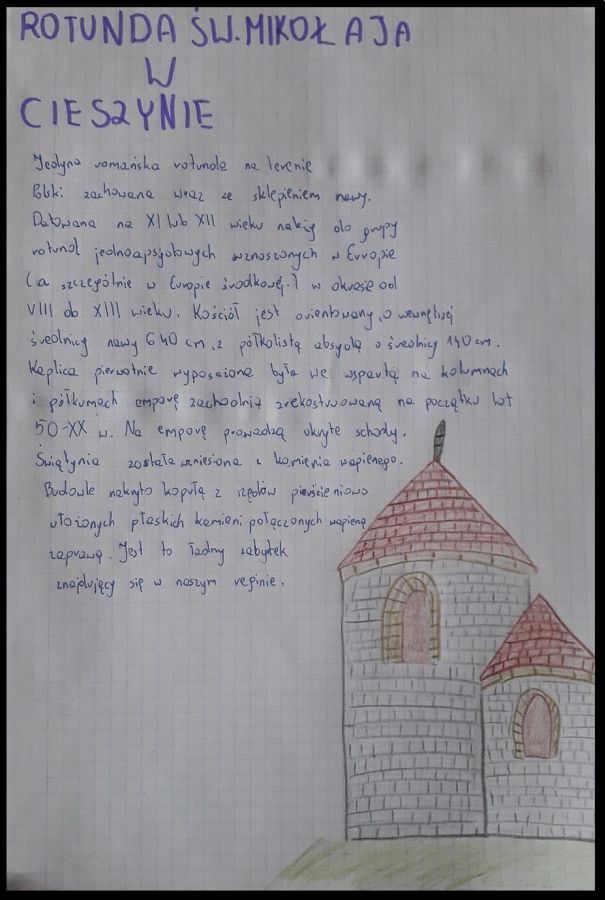 ROTUNDA ŚW. MIKOŁAJA
W
CIESZYNIE
Jedyna romańska rotunda na terenie
Polski zachowana wraz ze sklepieniem nawy.
Datowana na XI lub XII wieku należy do grupy
rotund jednoapsydowych wznoszonych w Europie
(a szczególnie w Europie środkowej.) w okresie od
VIII do XIII wieku. Kościół jest orientowany, o wewnętrzej
średnicy nawy 640 cm, z półkolistą absydą o średnicy 140 cm.
Kaplica pierwotnie wyposażona była we wspartą na kolumnach
i półkumach emporę zachodnią zrekostruowaną na początku lat
50-XX w. Na emporę prowadzą ukryte schody.
Świątynia została wzniesiona z kamienia wapienego.
Budowle nakryto kopułą z rzędów pierścieniowo
ułożonych płaskich kamieni połączonych wapieną
zaprawą. Jest to ładny zabytek
znajdujący się w naszym reginie.